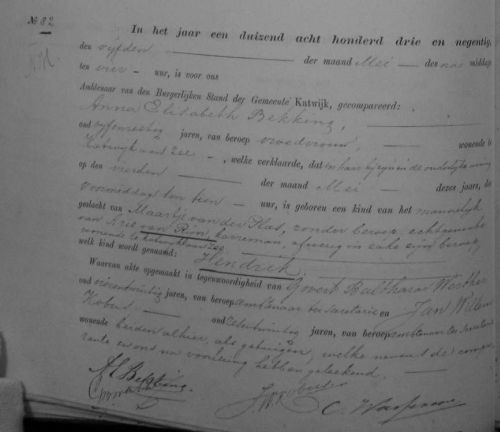 No 82
In het jaar een duizend acht honderd drie en negentig,
den vijfden der maand Mei des na middags
ten vier uur, is voor ons
Ambtenaar van den Burgerlijken Stand der Gemeente Katwijk, gecompareerd:
Anna Elisabeth Bekking,
oud jaren, van beroep vroedvrouw, wonende te
Katwijk aan Zee, welke verklaarde, dat in haar bijzijn in de ondervolgde woning
op den vierden der maand Mei dezes jaars, des
voormiddags ten tien uur, is geboren een kind van het mannelijk
geslacht van Maartje van der Plas, zonder beroep, echtgenoote
van Arie van Rijn, karreman, afwezig in zake zijn beroep,
wonende te Katwijk aan Zee
welk kind wordt genaamd: Hendrik.
Waarvan akte opgemaakt in tegenwoordigheid van Govert Balthazar
oud jaren, van beroep ambtenaar ter secretarie en Jan Willem
oud jaren, van beroep ambtenaar ter secretarie
wonende beiden alhier, als getuigen, welke nevens de
en ons na voorlezing hebben geteekend.
A E Bekking.